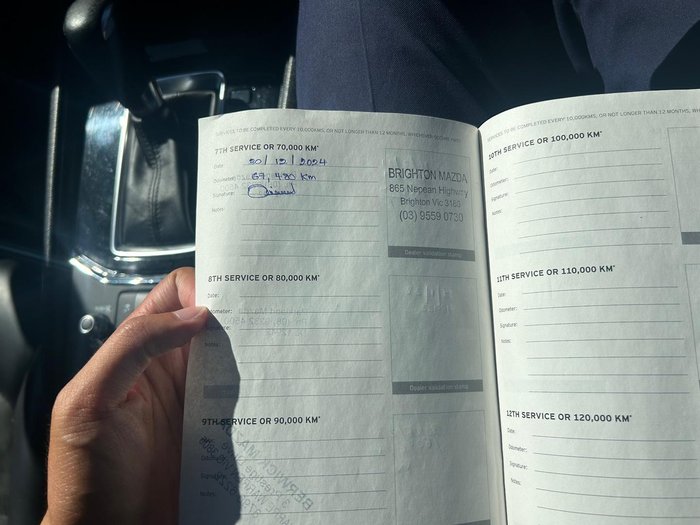 SERVICES TO BE COMPLETED EVERY 10,000KMS, OR NOT LONGER THAN 12 MONTHS, WHICHEVER OCCURS FIRST
7TH SERVICE OR 70,000 KM*
Date: 20/12/2024
Odometer: 67,480 Km
Signature:
Notes:
BRIGHTON MAZDA
865 Nepean Highway
Brighton Vic 3186
(03) 9559 0730
Dealer validation stamp
8TH SERVICE OR 80,000 KM*
Date:
Odometer:
Signature:
Notes:
Dealer validation stamp
9TH SERVICE OR 90,000 KM*
Date:
Odometer:
Signature:
Notes:
BERWICK MAZDA
SERVICES TO BE COMPLETED EVERY 10,000KMS, OR NOT LONGER THAN 12 MONTHS,
10TH SERVICE OR 100,000 KM*
Date:
Odometer:
Signature:
Notes:
11TH SERVICE OR 110,000 KM*
Date:
Odometer:
Signature:
Notes:
12TH SERVICE OR 120,000 KM*
Date:
Odometer:
Signature:
Notes: